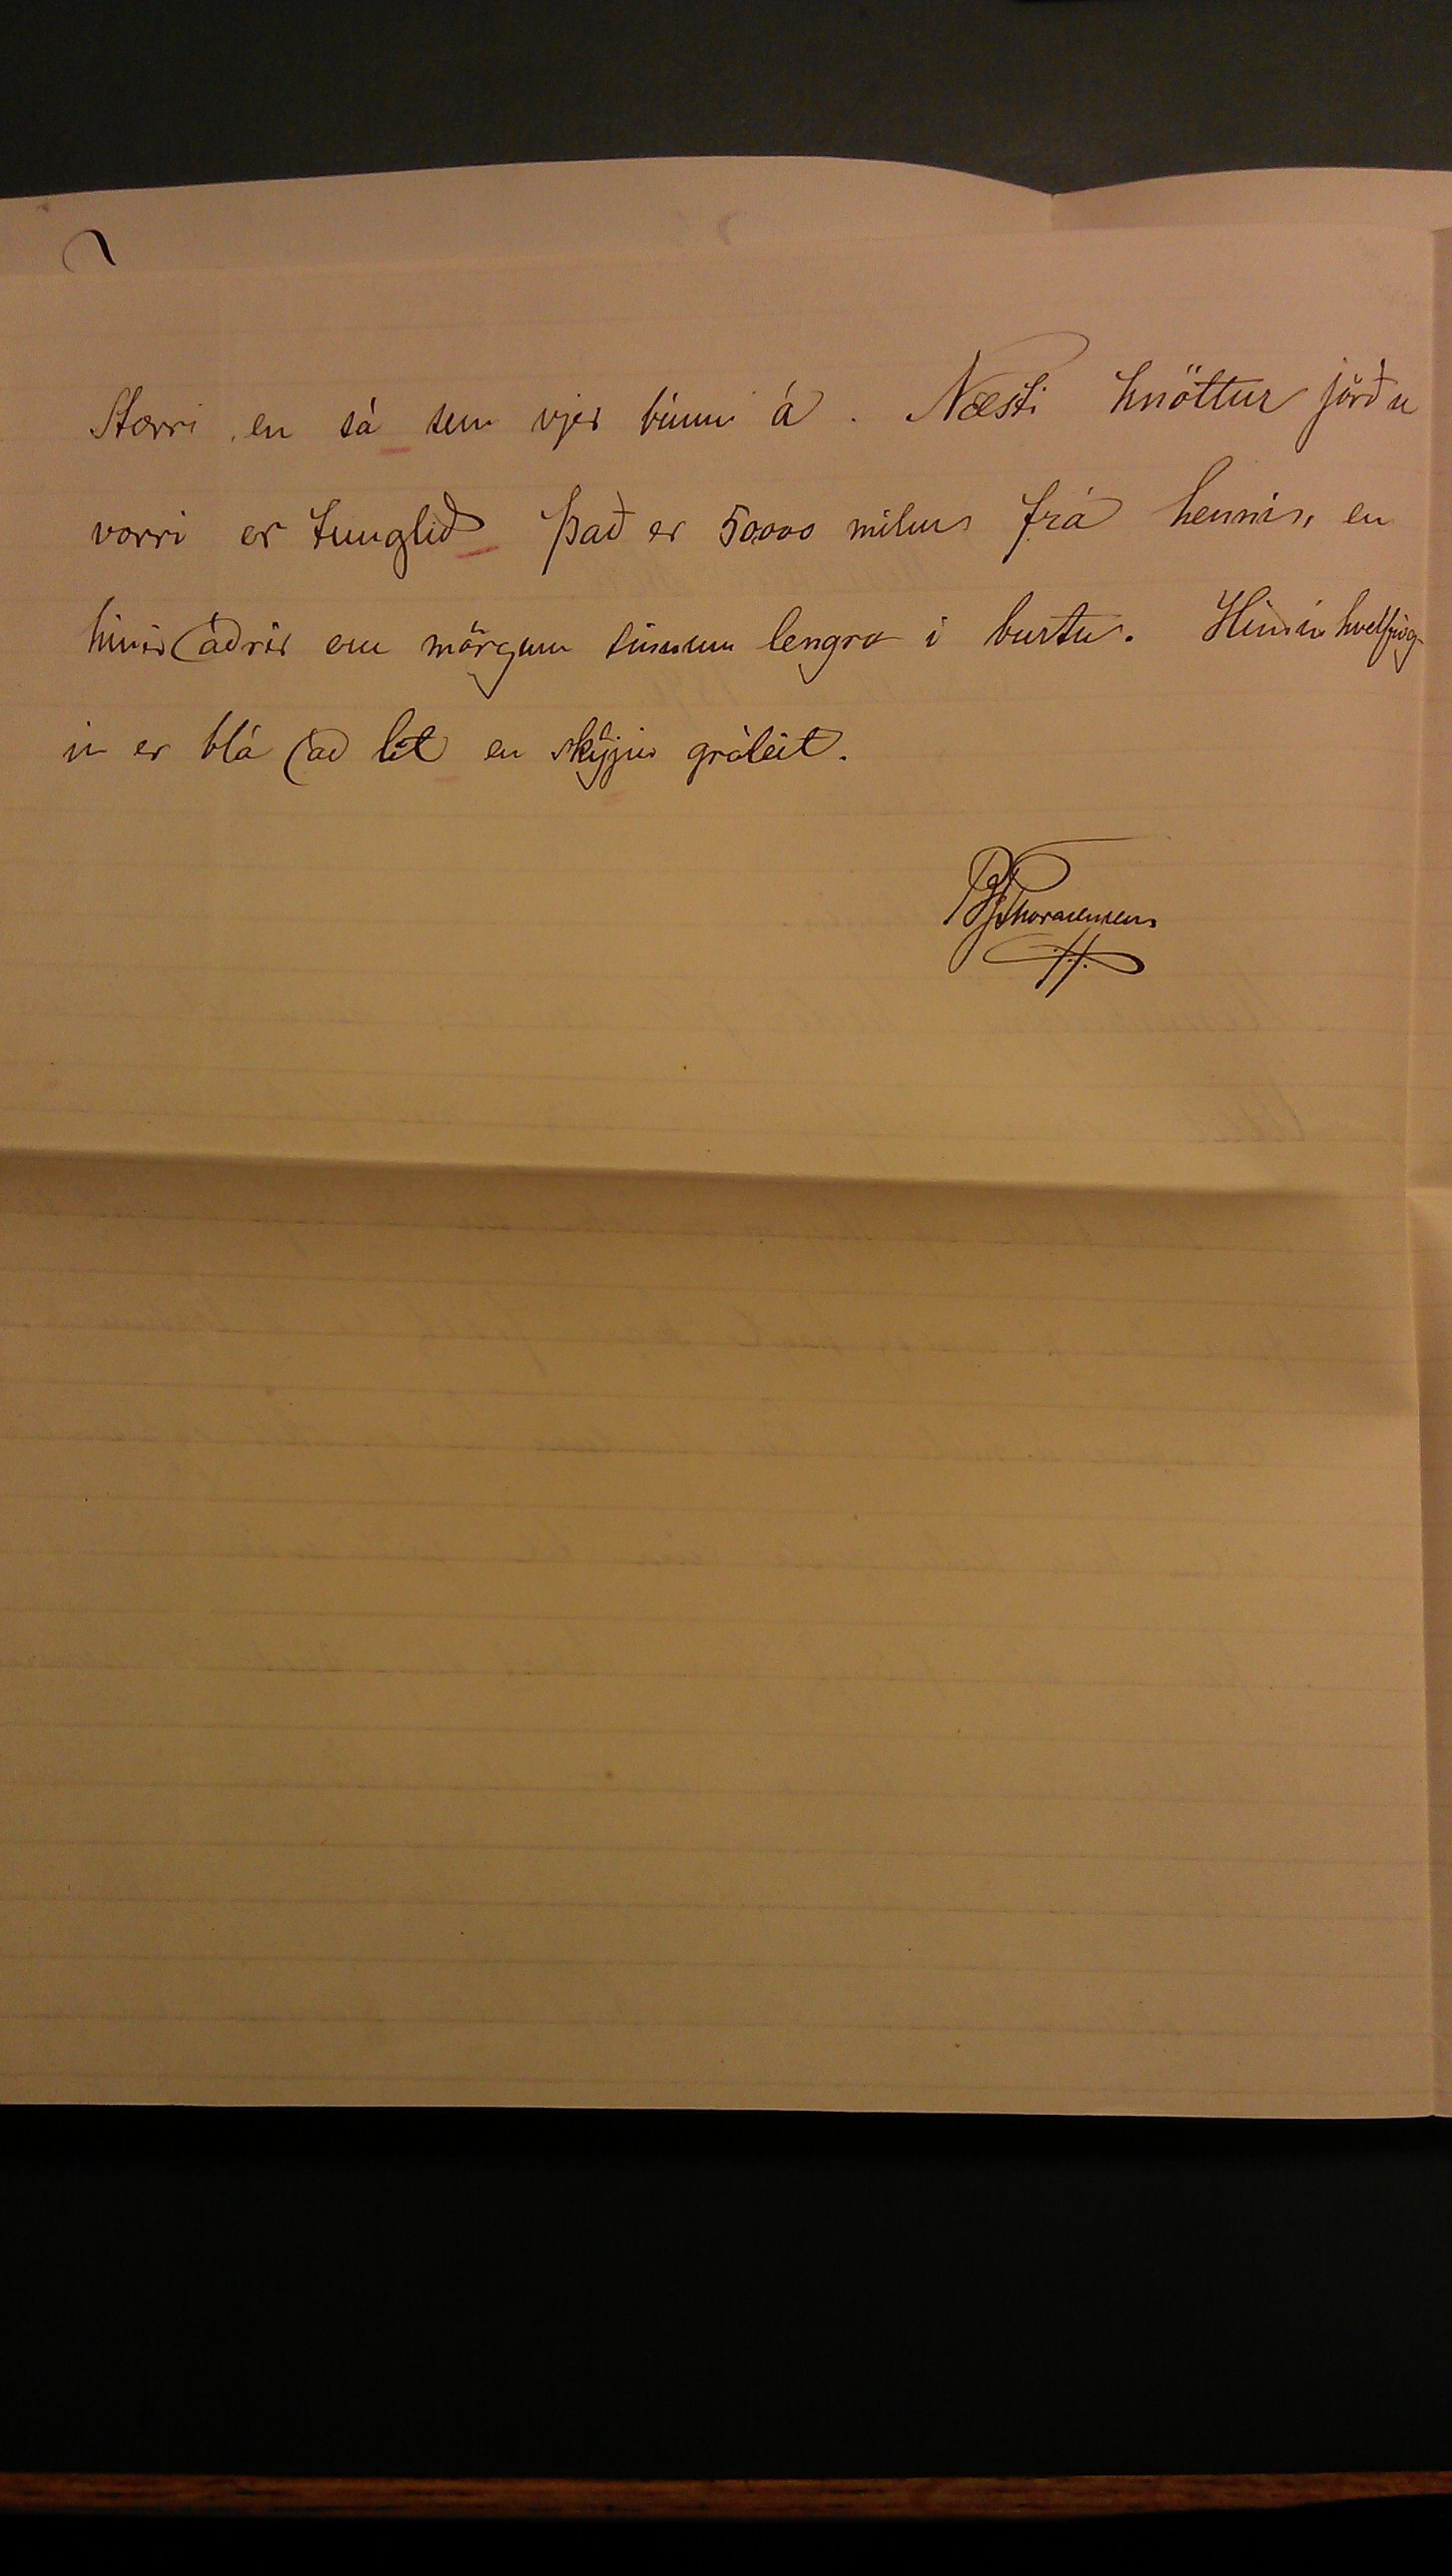 Stærri en sá sem vjer búum á. Næsti hnöttur jörðu
vorri er tunglið það er 50000 milur frá henni, en
hinir aðrir eru mörgum sinnum lengra i burtu. Himinhvelfing
in er blá að lit en skýjin gráleit.
Thorarensen